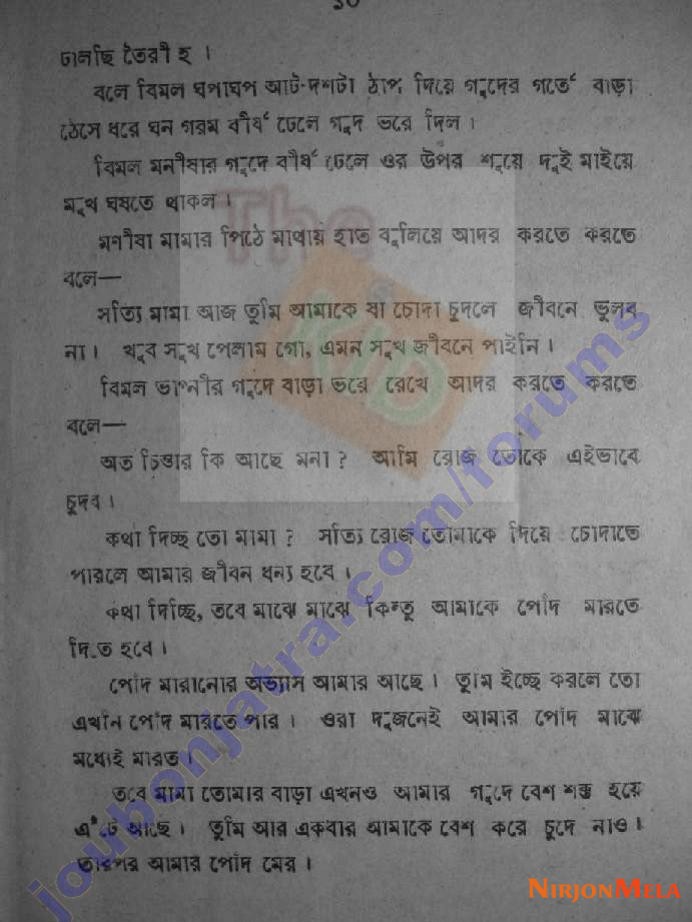 ১০
ঢালছি তৈরী হ।
বলে বিমল ঘপাঘপ আট-দশটা ঠাপ দিয়ে গুদের গর্তে বাড়া
ঠেসে ধরে ঘন গরম বীর্য ঢেলে গুদ ভরে দিল।
বিমল মনীষার গুদে বীর্য ঢেলে ওর উপর শুয়ে দুই মাইয়ে
মুখ ঘষতে থাকল।
মনীষা মামার পিঠে মাথায় হাত বুলিয়ে আদর করতে করতে
বলে—
সত্যি মামা আজ তুমি আমাকে যা চোদা চুদলে জীবনে ভুলব
না। খুব সুখ পেলাম গো, এমন সুখ জীবনে পাইনি।
বিমল ভাগ্নীর গুদে বাড়া ভরে রেখে আদর করতে করতে
বলে—
অত চিন্তার কি আছে মনা? আমি রোজ তোকে এইভাবে
চুদব।
কথা দিচ্ছ তো মামা? সত্যি রোজ তোমাকে দিয়ে চোদাতে
পারলে আমার জীবন ধন্য হবে।
কথা দিচ্ছি, তবে মাঝে মাঝে কিন্তু আমাকে পোঁদ মারতে
দিতে হবে।
পোঁদ মারানোর অভ্যাস আমার আছে। তুমি ইচ্ছে করলে তো
এখনি পোঁদ মারতে পার। ওরা দুজনেই আমার পোঁদ মাঝে
মধ্যেই মারত।
তবে মামা তোমার বাড়া এখনও আমার গুদে বেশ শক্ত হয়ে
এঁটে আছে। তুমি আর একবার আমাকে বেশ করে চুদে নাও।
তারপর আমার পোঁদ মের।
The
KiD
joubonjatra.com/forums
NIRJONMELA